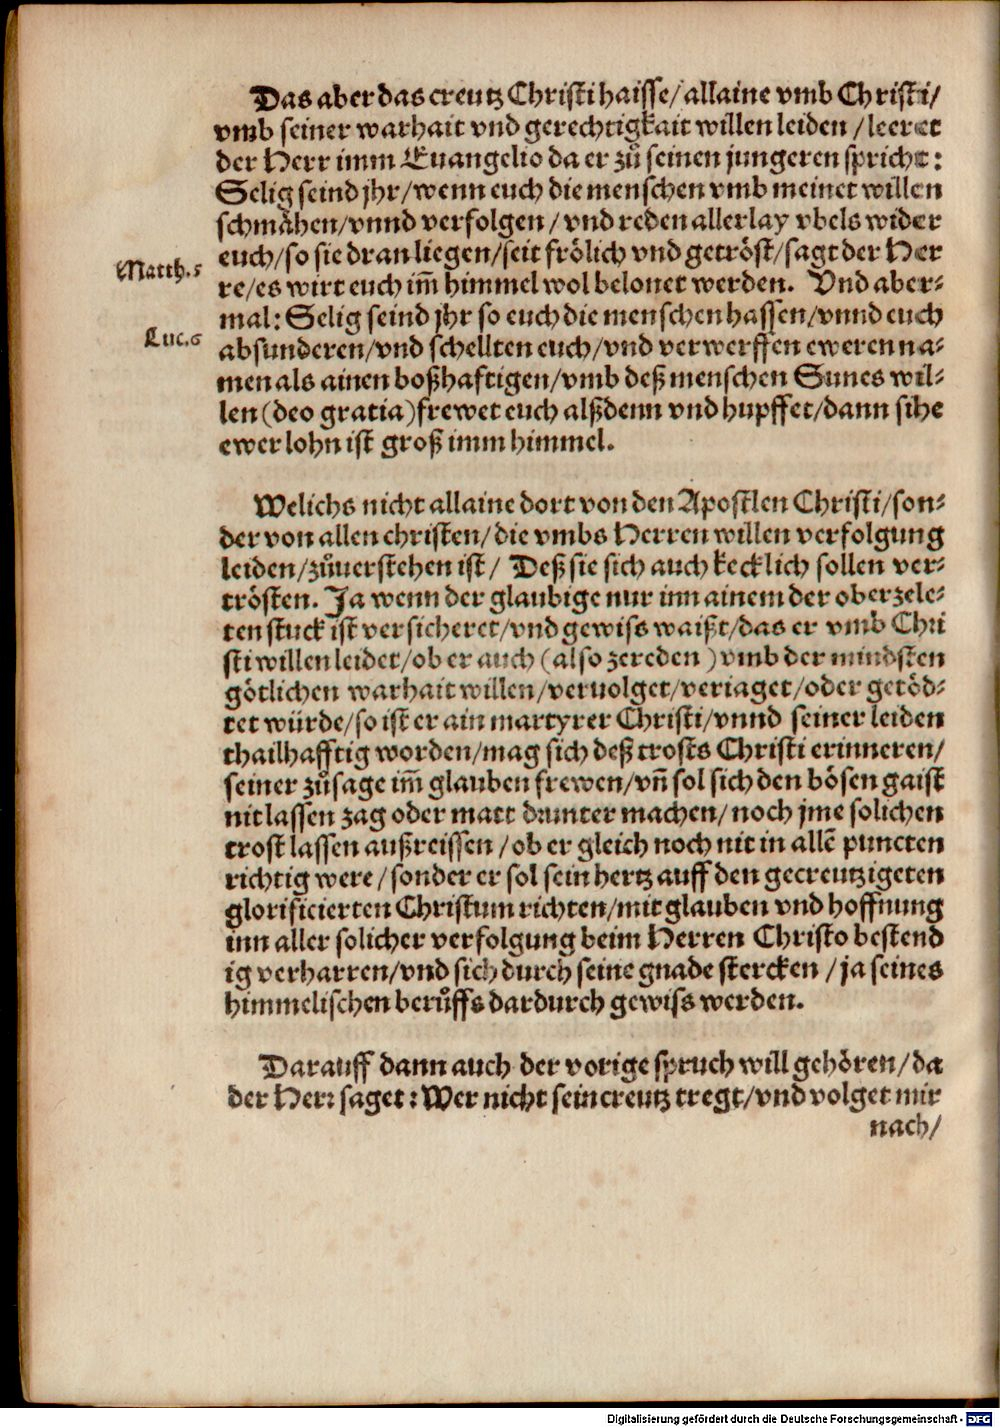 Das aber das creutz Christi haisse/ allaine vmb Christi/
vmb seiner warhait vnd gerechtigkait willen leiden / leeret
der Herr imm Euangelio da er zů seinen jungeren spricht:
Selig seind jhr/ wenn euch die menschen vmb meinet willen
schmåhen/ vnnd verfolgen / vnd reden allerlay vbels wider
euch/ so sie dran liegen/ seit frölich vnd getröst/ sagt der Her
Matth.5
re/ es wirt euch im̃ himmel wol belonet werden. Vnd aber⸗
mal: Selig seind jhr so euch die menschen hassen/ vnnd euch
Luc.6
absunderen/ vnd schellten euch/ vnd verwerffen eweren na⸗
men als ainen boßhaftigen/ vmb deß menschen Sunes wil⸗
len (deo gratia) frewet euch alßdenn vnd hupffet/ dann sihe
ewer lohn ist groß imm himmel.
Welichs nicht allaine dort von den Apostlen Christi/ son⸗
der von allen christen/ die vmbs Herren willen verfolgung
leiden/ zůuerstehen ist/ Deß sie sich auch kecklich sollen ver⸗
trösten. Ja wenn der glaubige nur inn ainem der oberzele⸗
ten stuck ist versicheret/ vnd gewiss waißt/ das er vmb Chri
sti willen leidet/ ob er auch (also zereden ) vmb der mindsten
götlichen warhait willen/ veruolget/ veriaget/ oder getöd⸗
tet würde/ so ist er ain martyrer Christi/ vnnd seiner leiden
thailhafftig worden/ mag sich deß trosts Christi erinneren/
seiner zůsage im̃ glauben frewen/ vñ sol sich den bösen gaist
nit lassen zag oder matt drunter machen/ noch jme solichen
trost lassen außreissen / ob er gleich noch nit in allẽ puncten
richtig were/ sonder er sol sein hertz auff den gecreutzigeten
glorificierten Christum richten/ mit glauben vnd hoffnung
inn aller solicher verfolgung beim Herren Christo bestend
ig verharren/ vnd sich durch seine gnade stercken / ja seines
himmelischen berůffs dardurch gewiss werden.
Darauff dann auch der vorige spruch will gehören/ da
der Herr saget: Wer nicht sein creutz tregt/ vnd volget mir
nach/
Digitalisierung gefördert durch die Deutsche Forschungsgemeinschaft - DFG